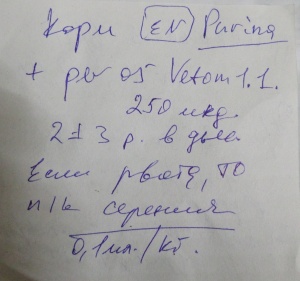 Корм EN Purina
+ per os Vetom 1.1.
250 мкд.
2±3 р. в день
Если рвота, то
п/к серения
0,1 мл./кг.